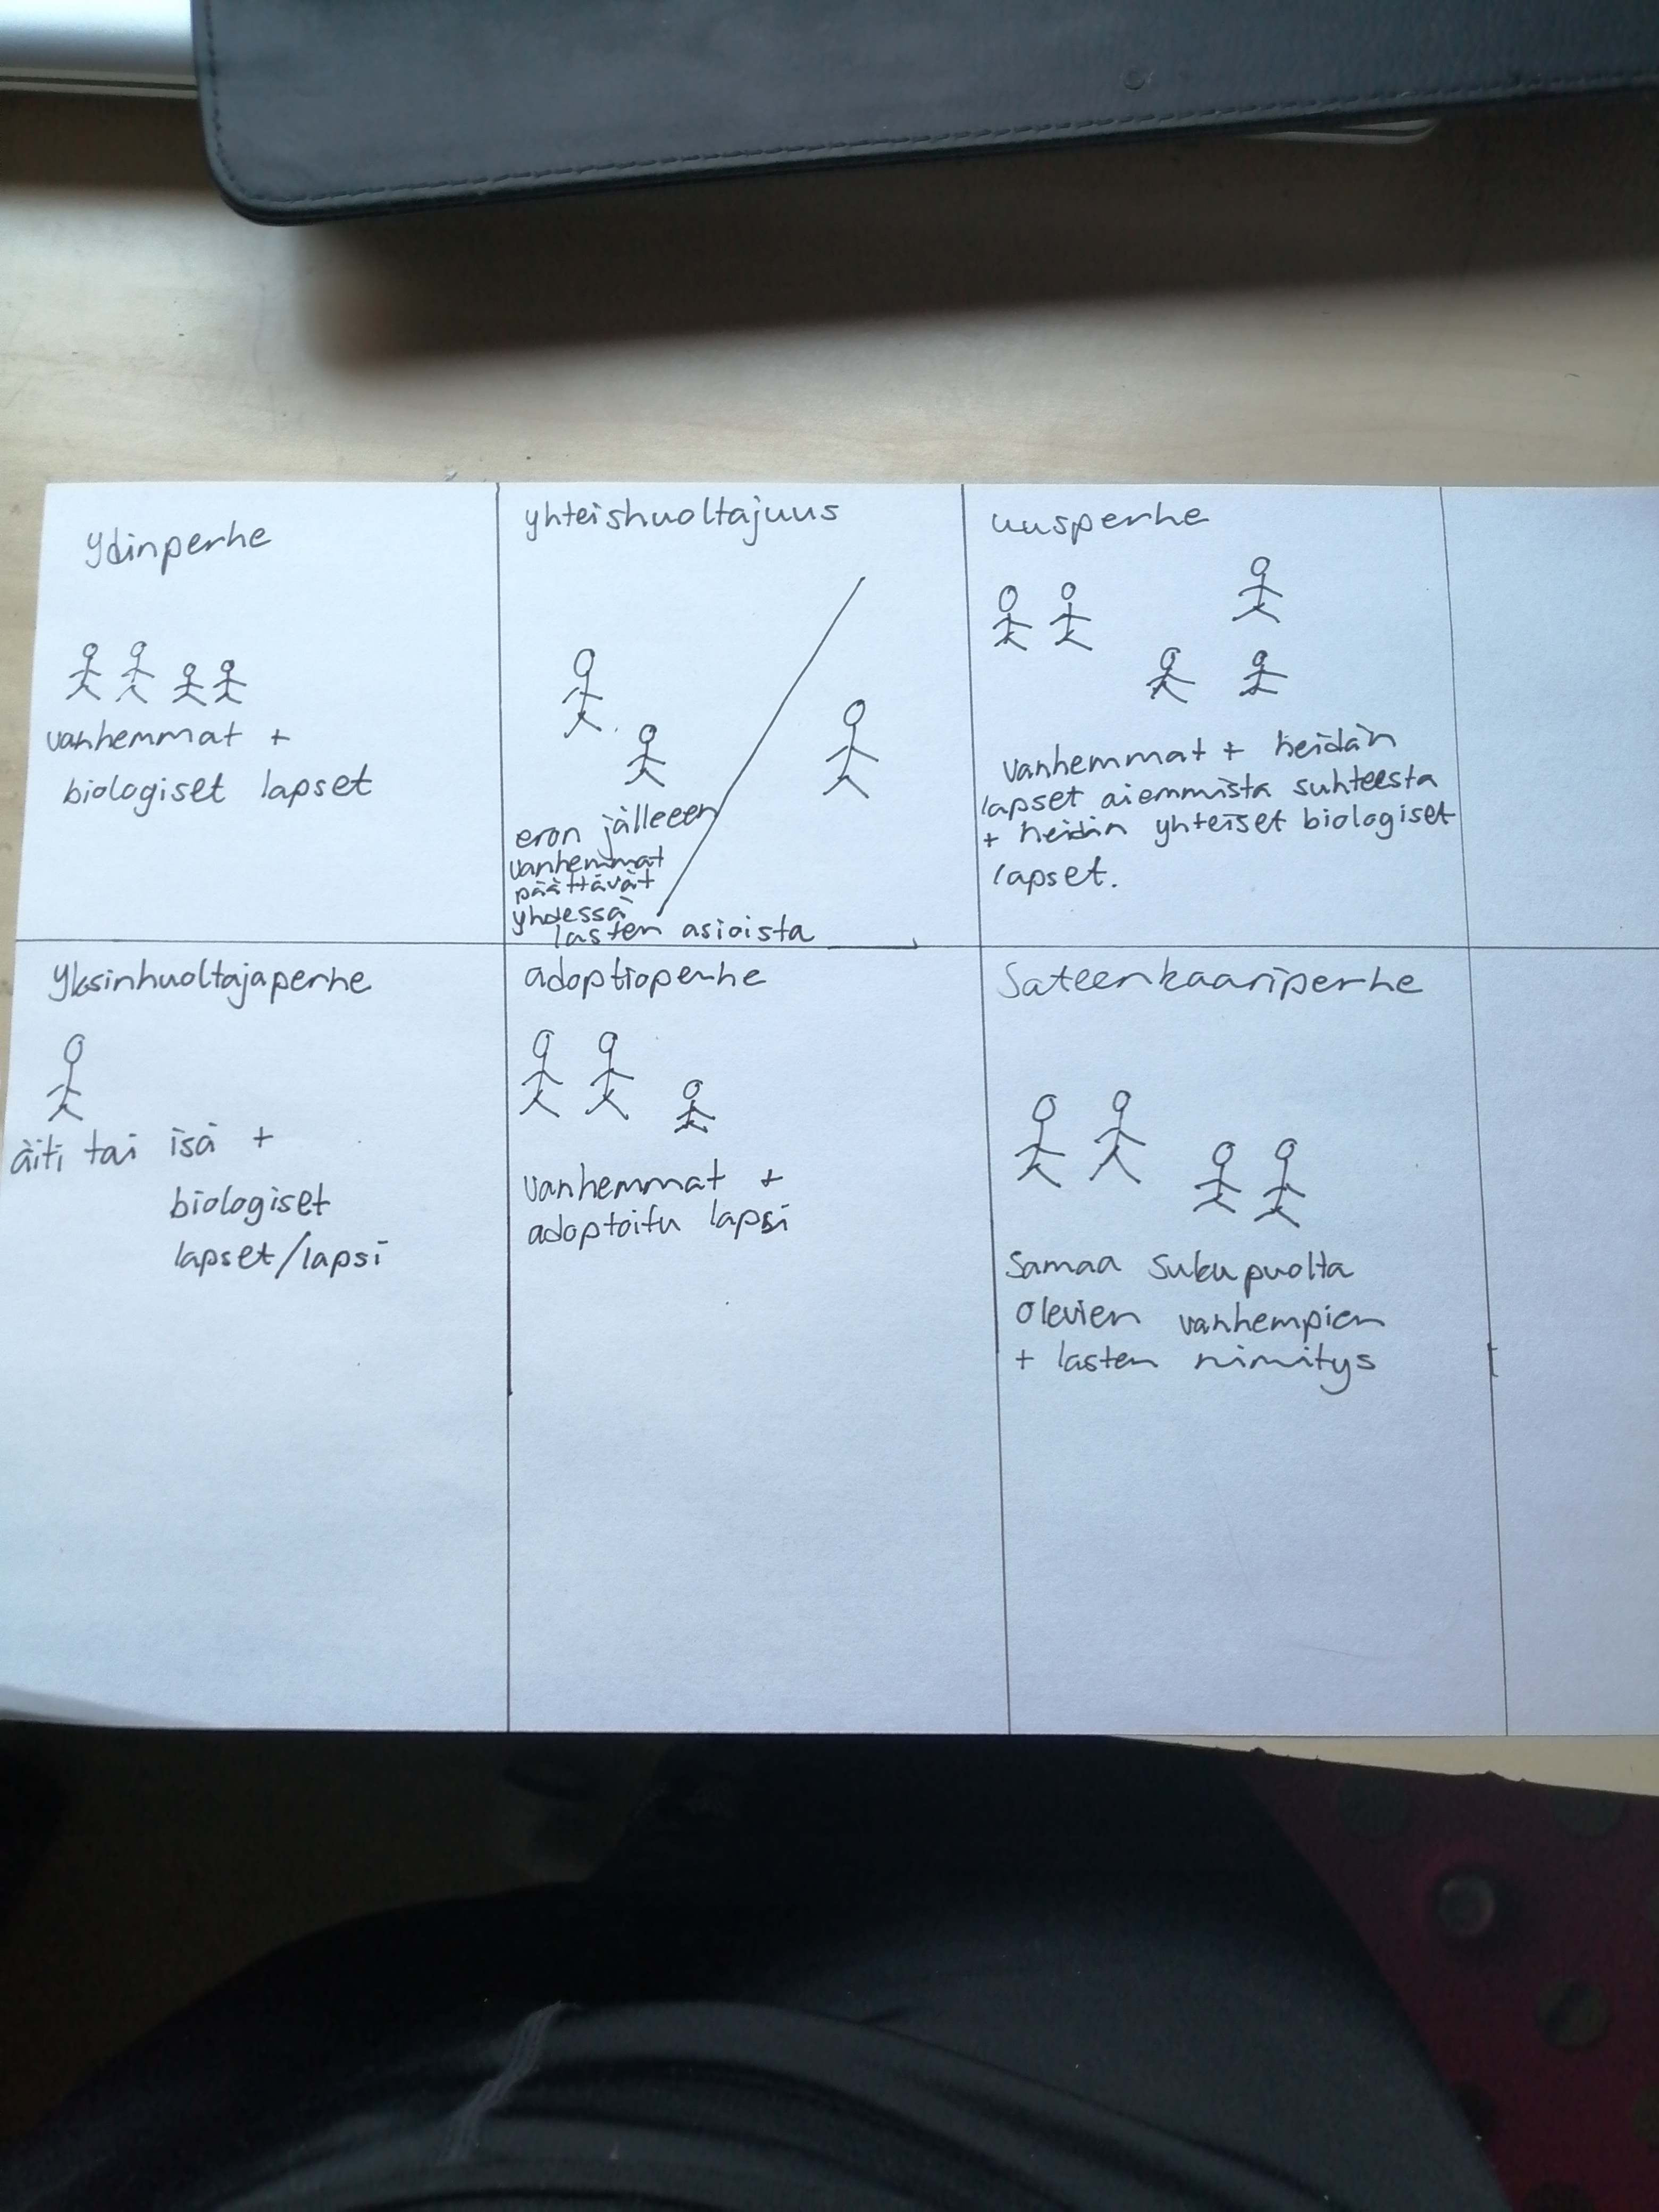 ydinperhe
vanhemmat +
biologiset lapset
yhteishuoltajuus
eron jälleen
vanhemmat
päättävät
yhdessä
lasten asioista
uusperhe
vanhemmat + heidän
lapset aiemmista suhteesta
+ heidän yhteiset biologiset
lapset.
Yksinhuoltajaperhe
äiti tai isä +
biologiset
lapset/lapsi
adoptioperhe
vanhemmat +
adoptoitu lapsi
Sateenkaariperhe
Samaa sukupuolta
olevien vanhempien
+ lasten nimitys